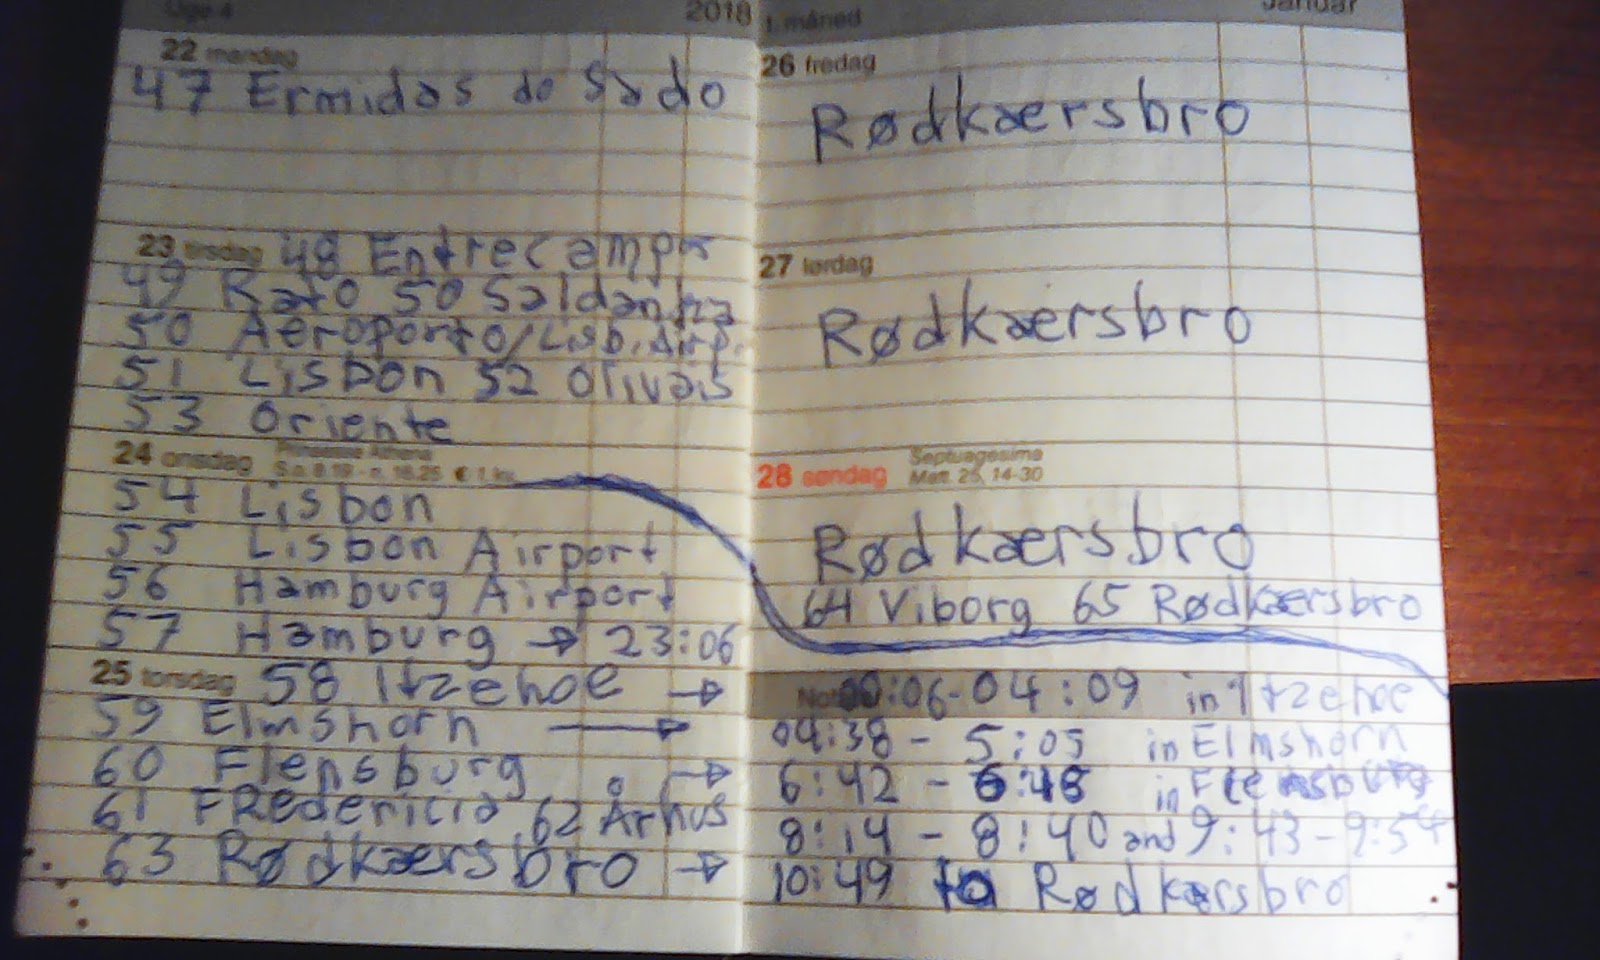 Uge 4 2018
22 mandag
47 Ermidas do Sado
23 tirsdag 48 Entrecampos
49 Rato 50 Saldanha
50 Aeroporto/Lisb. Airp.
51 Lisbon 52 Olivais
53 Oriente
24 onsdag Prinsesse Athena
S.o. 8.19 - n. 16.25
54 Lisbon
55 Lisbon Airport
56 Hamburg Airport
57 Hamburg → 23:06
25 torsdag 58 Itzehoe →
59 Elmshorn →
60 Flensburg →
61 FRedericia 62 Århus
63 Rødkærsbro →
1. måned Januar
26 fredag
Rødkærsbro
27 lørdag
Rødkærsbro
28 søndag Septuagesima
Matt. 25, 14-30
Rødkærsbro
64 Viborg 65 Rødkærsbro
00:06-04:09 in Itzehoe
04:38 - 5:05 in Elmshorn
6:42 - 6:48 in Flensburg
8:14 - 8:40 and 9:43-9:54
10:49 to Rødkærsbro